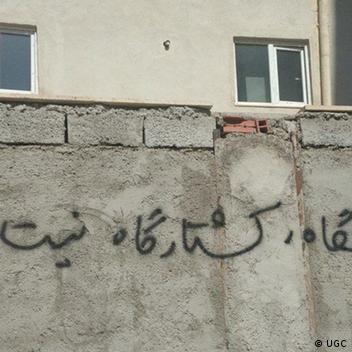 کشتارگاه نیست
© UGC